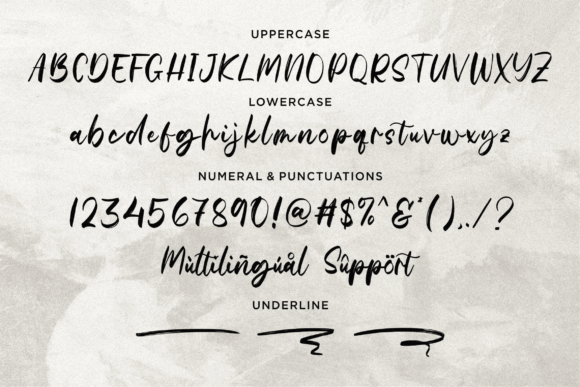 UPPERCASE
ABCDEFGHIJKLMNOPQRSTUVWXYZ
LOWERCASE
abcdefghijklmnopqrstuvwxyz
NUMERAL & PUNCTUATIONS
1234567890!@#$%^&*(),./?
Mùltiliñgúål Sûppört
UNDERLINE